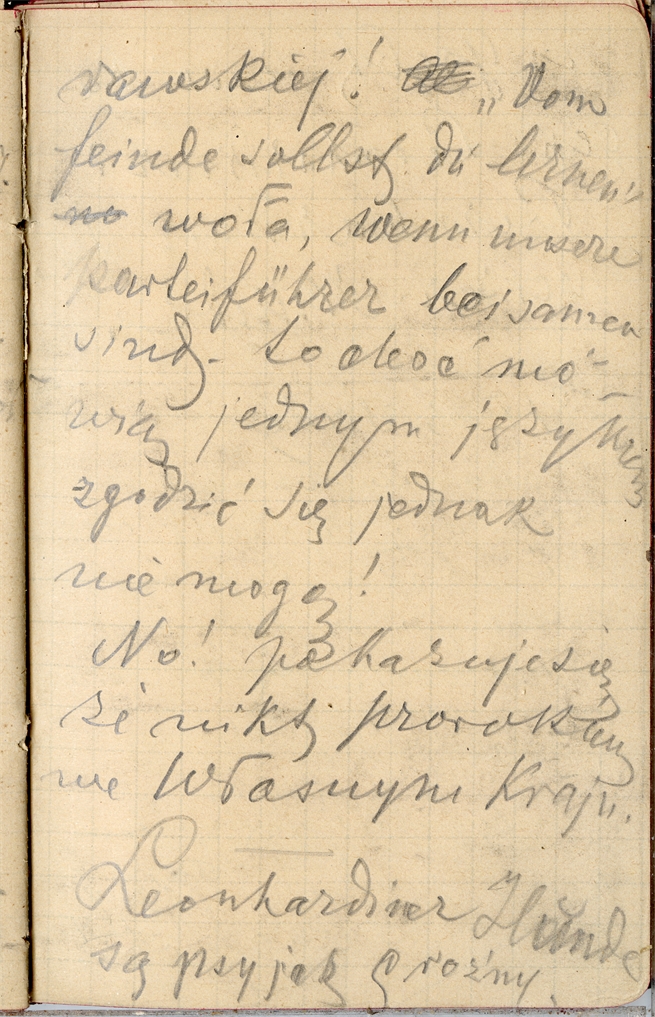 rawskiej! „Vom
feinde sollst du lernen“
woła, wenn unsere
Parteiführer beisamen
sind - to choć mó-
wią jednym językiem
zgodzić się jednak
nie mogą!
No! pokazuje się
że nikt prorokiem
we własnym Kraju.
Leonhardiner Hunde
są psy jak